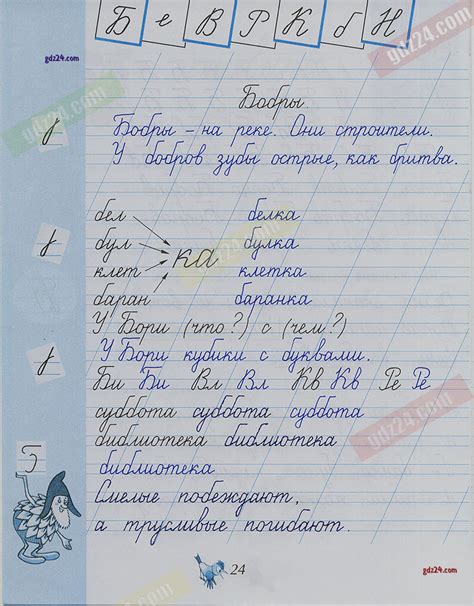 Б е В Р К б Н
gdz24.com
gdz24.com
gdz24.com
Бобры.
Бобры – на реке. Они строители.
У бобров зубы острые, как бритва.
gdz24.com
бел белка
бул булка
ка
клет клетка
баран баранка
У Бори (что?) с (чем?)
У Бори кубики с буквами.
Би Би Вл Вл Кв Кв Ре Ре
суббота суббота суббота
gdz24.com
библиотека библиотека
библиотека
Смелые побеждают,
а трусливые погибают.
24
gdz24.com